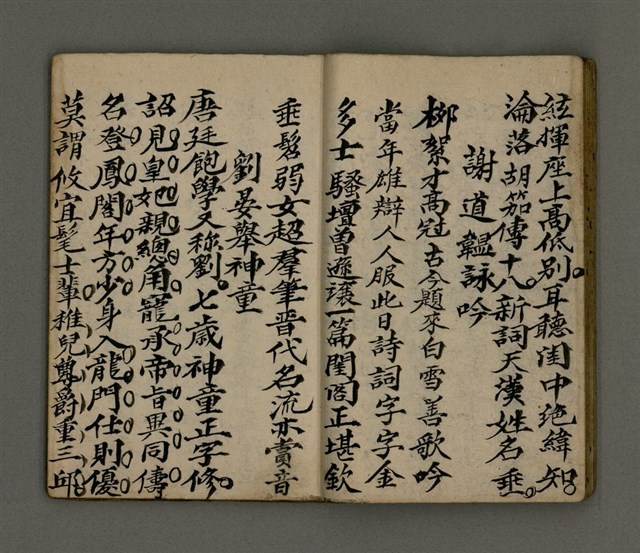 絃揮座上髙低別耳聽闺中絶緯知
淪落胡笳傳十八新詞天漢姓名垂
謝道韞詠吟
栁絮才髙冠古今題來白雪善歌吟
當年雄辯人人服此日詩詞字字金
多士騷壇曽遜讓一篇閨閣正堪欽
垂髫弱女超羣筆晋代名流亦賞音
劉晏舉神童
唐廷飽學又稱劉七歳神童正字修
詔見皇妃親總角寵承帝旨異同儔
名登鳳閣年方少身入龍門仕則優
莫謂攸宜髦士輩稚兒尊爵重三邱